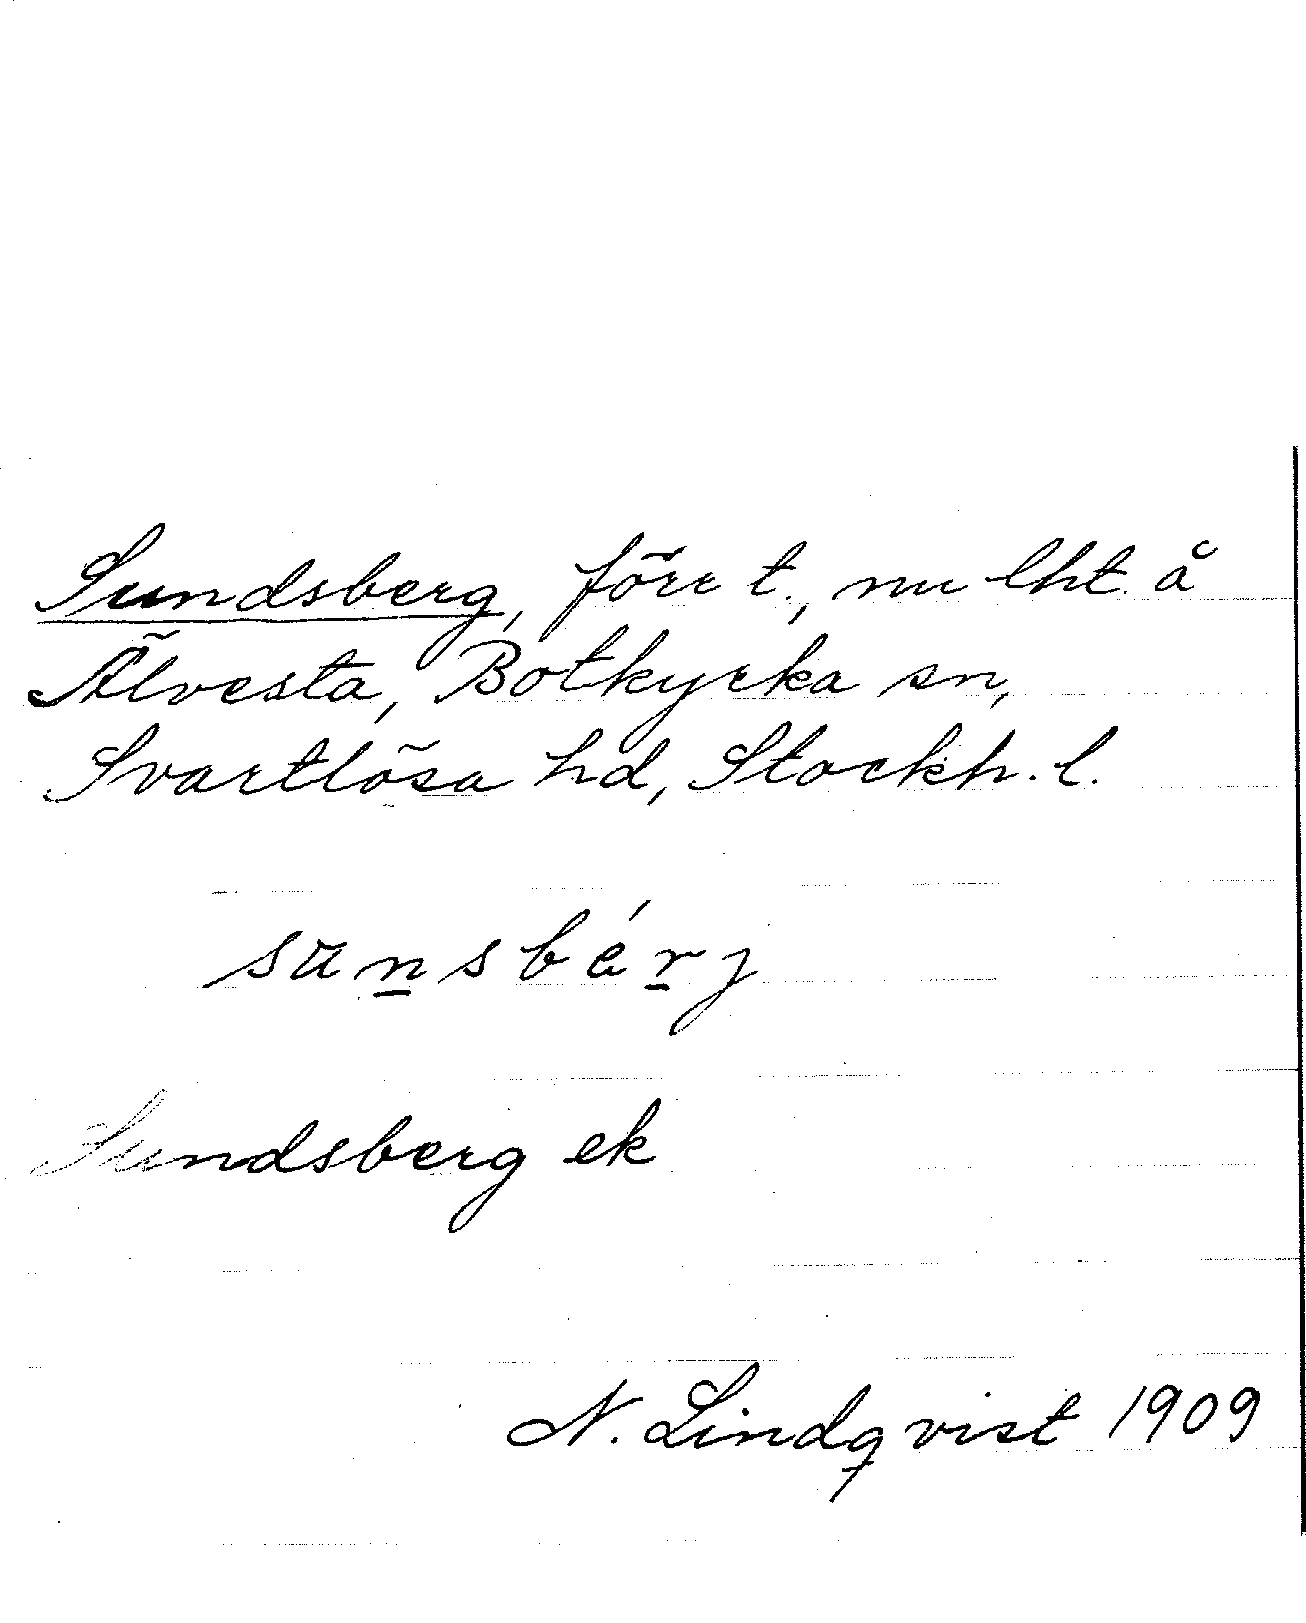 Sundsberg, förr t., nu lht å
Älvesta, Botkyrka sn,
Svartlösa hd, Stockh. l.
sunsbérj
Sundsberg ek
N. Lindqvist 1909